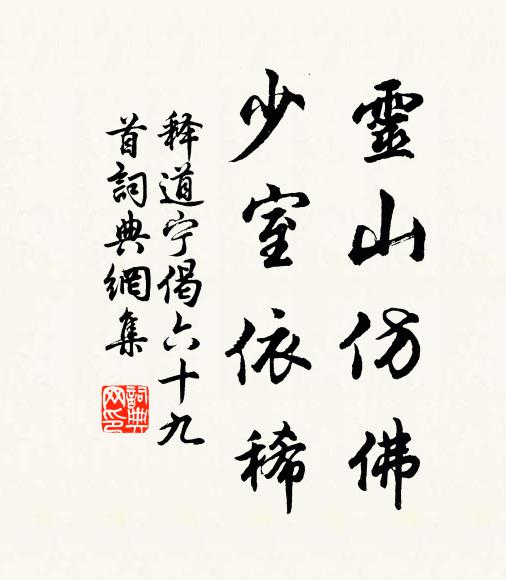 靈山仿佛
少室依稀
释道宁偈六十九
首詞典網集
詞典
网印